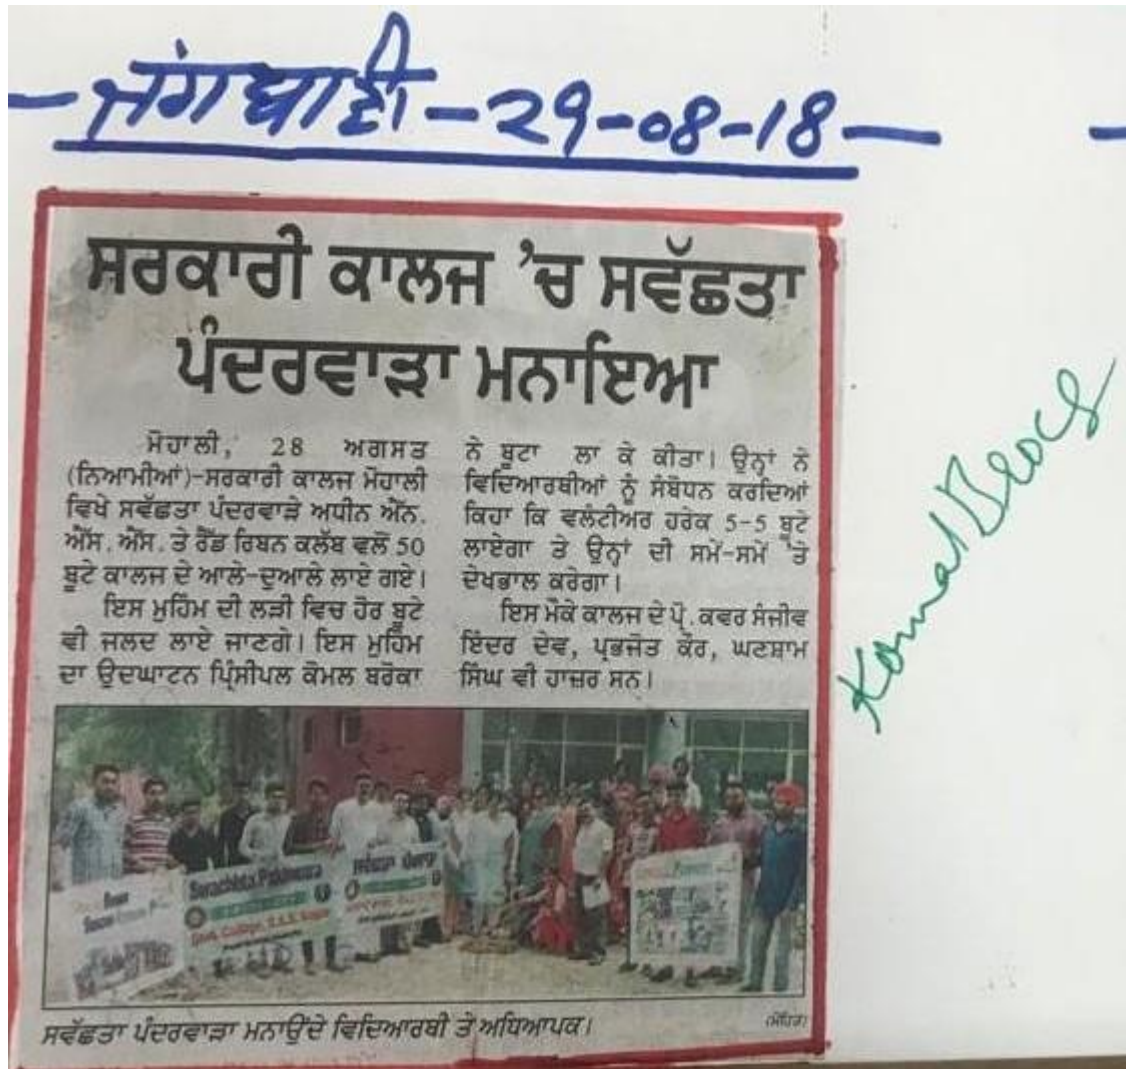 ਜਗਬਾਣੀ - 29-08-18
ਸਰਕਾਰੀ ਕਾਲਜ ’ਚ ਸਵੱਛਤਾ
ਪੰਦਰਵਾੜਾ ਮਨਾਇਆ
ਮੋਹਾਲੀ, 28 ਅਗਸਤ
(ਨਿਆਮੀਆਂ)-ਸਰਕਾਰੀ ਕਾਲਜ ਮੋਹਾਲੀ
ਵਿਖੇ ਸਵੱਛਤਾ ਪੰਦਰਵਾੜੇ ਅਧੀਨ ਐੱਨ.
ਐੱਸ. ਐੱਸ. ਤੇ ਰੈੱਡ ਰਿਬਨ ਕਲੱਬ ਵਲੋਂ 50
ਬੂਟੇ ਕਾਲਜ ਦੇ ਆਲੇ-ਦੁਆਲੇ ਲਾਏ ਗਏ।
ਇਸ ਮੁਹਿੰਮ ਦੀ ਲੜੀ ਵਿਚ ਹੋਰ ਬੂਟੇ
ਵੀ ਜਲਦ ਲਾਏ ਜਾਣਗੇ। ਇਸ ਮੁਹਿੰਮ
ਦਾ ਉਦਘਾਟਨ ਪ੍ਰਿੰਸੀਪਲ ਕੋਮਲ ਬਰੋਕਾ
ਨੇ ਬੂਟਾ ਲਾ ਕੇ ਕੀਤਾ। ਉਨ੍ਹਾਂ ਨੇ
ਵਿਦਿਆਰਥੀਆਂ ਨੂੰ ਸੰਬੋਧਨ ਕਰਦਿਆਂ
ਕਿਹਾ ਕਿ ਵਲੰਟੀਅਰ ਹਰੇਕ 5-5 ਬੂਟੇ
ਲਾਏਗਾ ਤੇ ਉਨ੍ਹਾਂ ਦੀ ਸਮੇਂ-ਸਮੇਂ ’ਤੇ
ਦੇਖਭਾਲ ਕਰੇਗਾ।
ਇਸ ਮੌਕੇ ਕਾਲਜ ਦੇ ਪ੍ਰੋ. ਕਵਰ ਸੰਜੀਵ
ਇੰਦਰ ਦੇਵ, ਪ੍ਰਭਜੋਤ ਕੌਰ, ਘਣਸ਼ਾਮ
ਸਿੰਘ ਵੀ ਹਾਜ਼ਰ ਸਨ।
Swachhta Pakhwara
Govt. College, S.A.S. Nagar
ਸਵੱਛਤਾ ਪੰਦਰਵਾੜਾ ਮਨਾਉਂਦੇ ਵਿਦਿਆਰਥੀ ਤੇ ਅਧਿਆਪਕ।
(ਮੋਹਿਤ)
Komal Broca